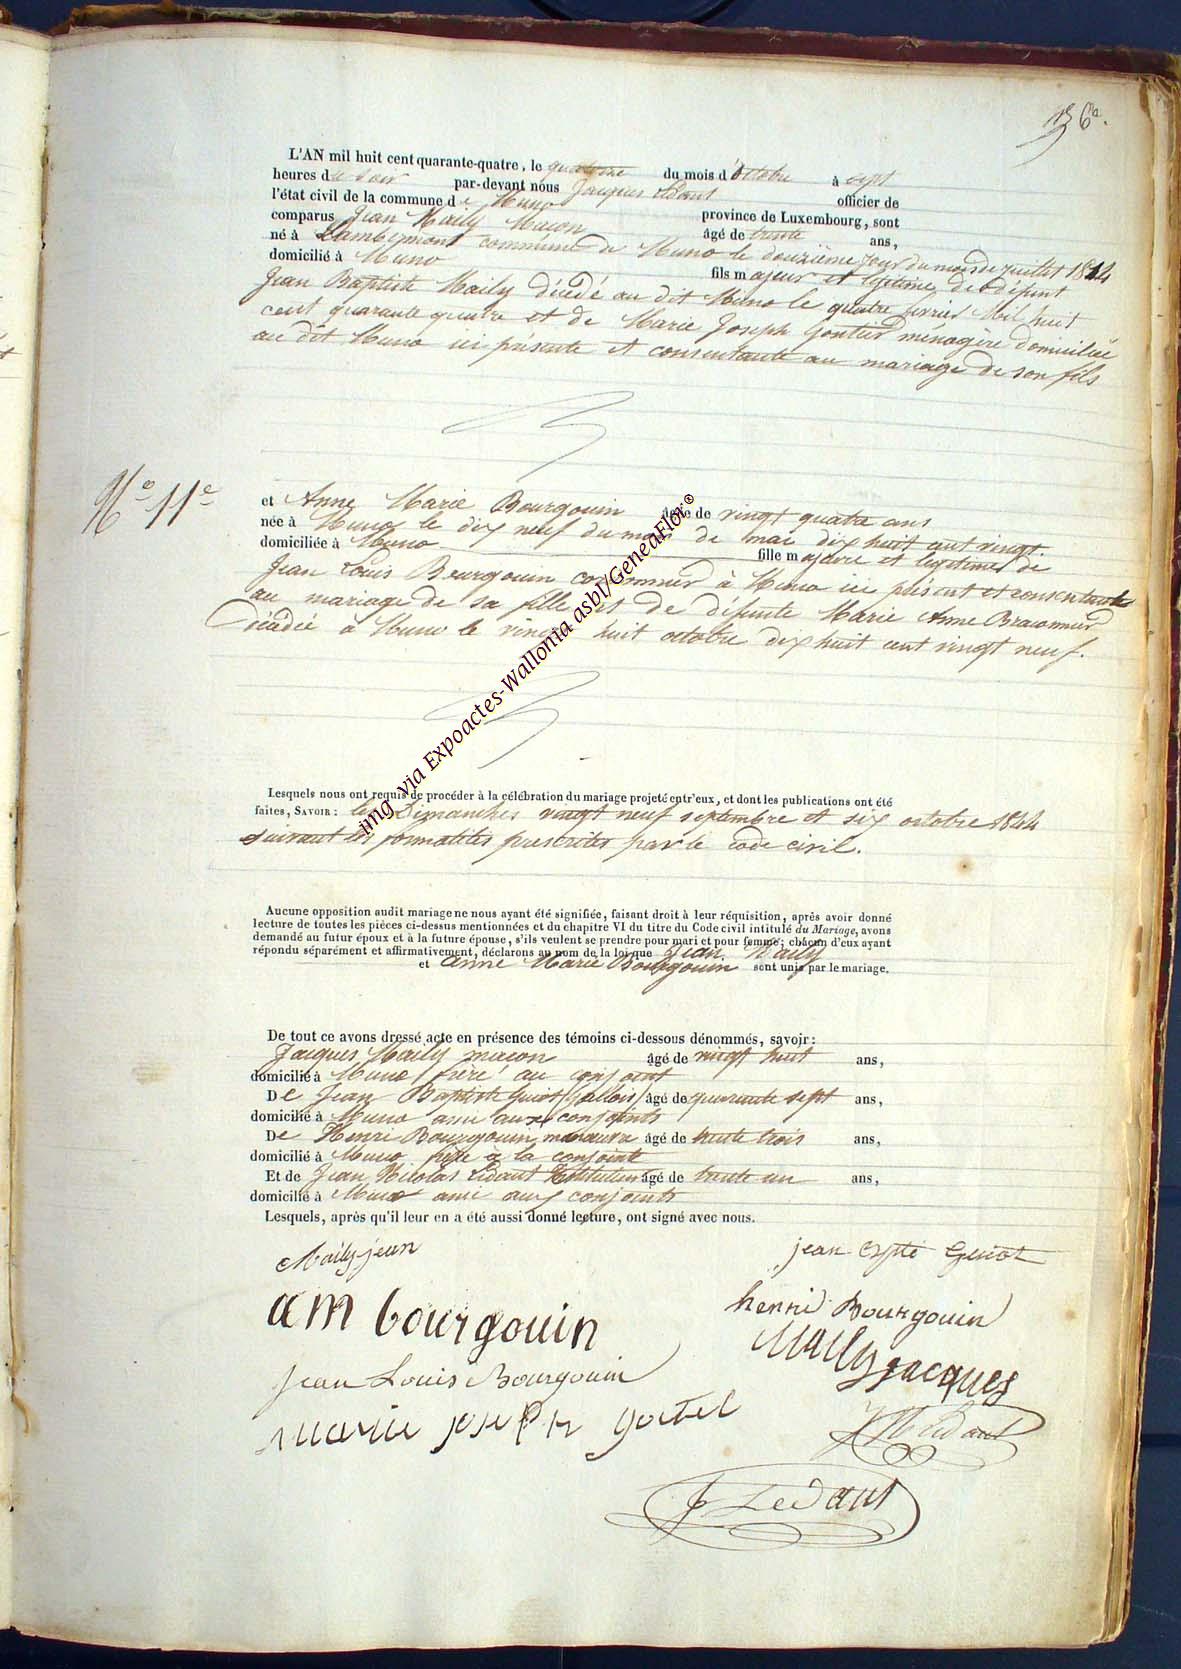 L'AN mil huit cent quarante-quatre, le quatorze du mois d'octobre à sept
heures du soir par-devant nous Jacques Ledant officier de
l'état civil de la commune de Muno province de Luxembourg, sont
comparus Jean Maily Macon âgé de trente ans,
né à Lambermont commune de Muno le douzième jour du mois de juillet 1814
domicilié à Muno fils majeur et légitime de défunt
Jean Baptiste Maily décédé au dit Muno le quatre février Mil huit
cent quarante quatre et de Marie Joseph ménagère domiciliée
au dit Muno ici présente et consentante au mariage de son fils
No 11e
et Anne Marie Bourgouin âgée de vingt quatre ans
née à Muno le dix neuf du mois de mai dix huit cent vingt.
domiciliée à Muno fille majeure et légitime de
Jean Louis Bourgouin cordonnier à Muno ici présent et consentant
au mariage de sa fille et de défunte Marie Anne Braconnier
Décédée à Muno le vingt huit octobre dix huit cent vingt neuf.
Lesquels nous ont requis de procéder à la célébration du mariage projeté entr'eux, et dont les publications ont été
faites, SAVOIR: les Dimanches vingt neuf septembre et six octobre 1844
suivant les formalités prescrites par le code civil.
Aucune opposition audit mariage ne nous ayant été signifiée, faisant droit à leur réquisition, après avoir donné
lecture de toutes les pièces ci-dessus mentionnées et du chapitre VI du titre du Code civil intitulé du Mariage, avons
demandé au futur époux et à la future épouse, s'ils veulent se prendre pour mari et pour femme; chacun d'eux ayant
répondu séparément et affirmativement, déclarons au nom de la loi que Jean Maily
et anne Marie Bourgouin sont unis par le mariage.
De tout ce avons dressé acte en présence des témoins ci-dessous dénommés, savoir:
Jacques Maily macon âgé de vingt huit ans,
domicilié à Muno frère au conjoint
De Jean Baptiste Guiot (Gallois) âgé de quarante sept ans,
domicilié à Muno ami aux conjoints
De Henri Bourgouin manœuvre âgé de trente trois ans,
domicilié à Muno frère à la conjointe
Et de Jean Nicolas Ledant Instituteur âgé de trente un ans,
domicilié à Muno ami aux conjoints
Lesquels, après qu'il leur en a été aussi donné lecture, ont signé avec nous.
Maily jean
jean Bpte Guiot
a m bourgouin
henri Bourgouin
Jean Louis Bourgouin
Maily jacques
marie joseph gortel
J N Ledant
J Ledant
img via Expoactes-Wallonia asbl/GeneaFlor©